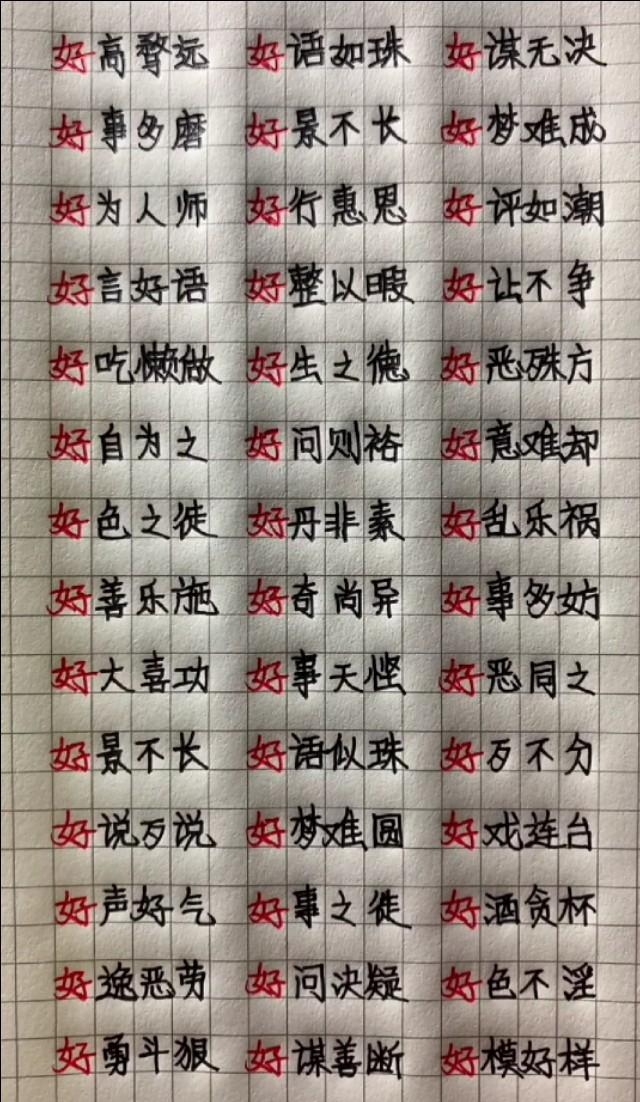 好高骛远 好语如珠 好谋无决
好事多磨 好景不长 好梦难成
好为人师 好行惠思 好评如潮
好言好语 好整以暇 好让不争
好吃懒做 好生之德 好恶殊方
好自为之 好问则裕 好意难却
好色之徒 好丹非素 好乱乐祸
好善乐施 好奇尚异 好事多妨
好大喜功 好事天悭 好恶同之
好景不长 好语似珠 好歹不分
好说歹说 好梦难圆 好戏连台
好声好气 好事之徒 好酒贪杯
好逸恶劳 好问决疑 好色不淫
好勇斗狠 好谋善断 好模好样